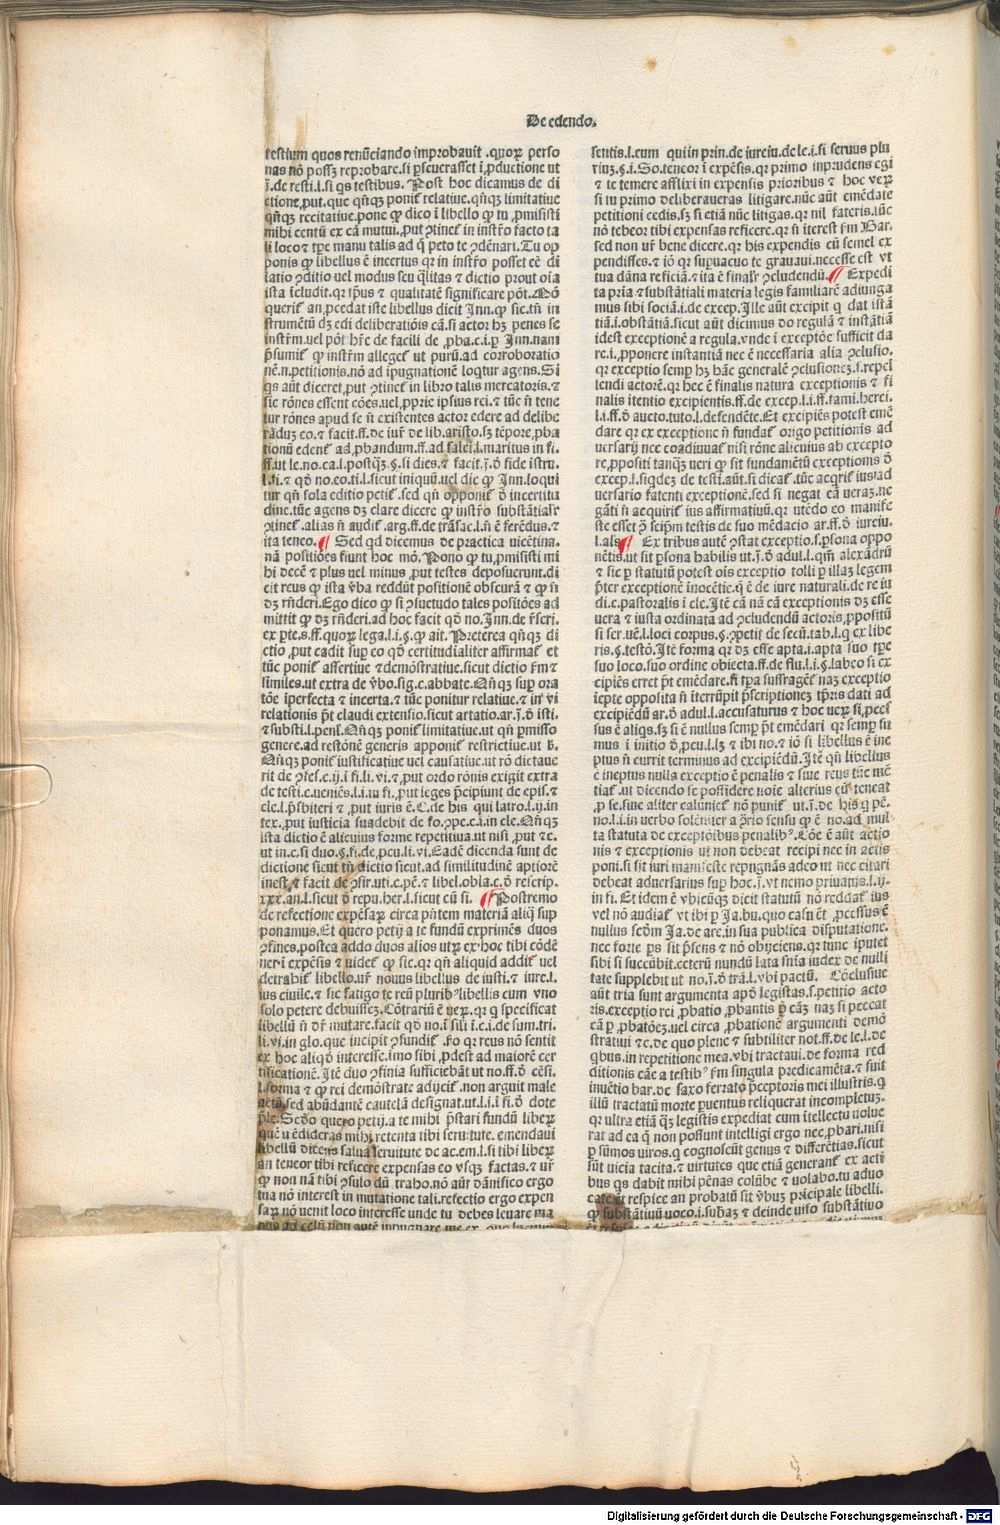 De edendo.
testium quos renũciando improbauit .quoꝝ perso
nas nõ possꝫ reprobare.si ꝑseuerasset ĩ ꝓductione ut
ĩ.de resti.l.si qs testibus. Post hoc dicamus de di
ctione ꝓut.que qñqꝫ poniť relatiue.qñqꝫ limitatiue
qñqꝫ recitatiue.pone ꝙ dico ĩ libello ꝙ tu ꝓmisisti
mihi centũ ex cã mutui.ꝓut ꝯtineť in instr̃o facto ta
li loco ⁊ tꝑe manu talis ad q̃ peto te ꝯdẽnari.Tu op
ponis ꝙ libellus ẽ incertus qr in instr̃o posset eẽ di
latio ꝯditio vel modus seu q̃litas ⁊ dictio prout oĩa
ista ĩcludit.qr tp̃us ⁊ qualitatẽ significare põt.Nõ
queriť an ꝓcedat iste libellus dicit Inn.ꝙ sic.tñ in
strumẽtũ dꝫ edi deliberatiõis cã.si actor hꝫ penes se
instr̃m.vel põt hr̃e de facili de ꝓba.c.i.ꝑ Inn.nam
p̃sumiť ꝙ instr̃m allegeť ut purũ.ad corroboratio
nẽ.n.petitionis.nõ ad ĩpugnationẽ loqtur agens.Si
qs aũt diceret ꝓut ꝯtineť in libro talis mercatoris.⁊
sic rõnes essent cões.uel ꝓprie ipsius rei.⁊ tũc ñ tene
tur rõnes apud se ñ existentes actor edere ad delibe
rãduꝫ eo.⁊ facit.ff.de iur̃ de lib.aristo.sꝫ tẽpore ꝓba
tionũ edenť ad ꝓbandum.ff.ad falci.l.maritus in fi.
ff.ut le.no.ca.l.postqꝫ.§.si dies.⁊ facit.j.õ fide istru.
l.fi.⁊ qõ no.co.ti.l.sicut iniquũ.uel dic ꝙ Inn.loqui
tur qñ sola editio petiť.sed qñ opponiť õ incertitu
dine.tũc agens dꝫ clare dicere ꝙ instr̃o substãtialr̃
ꝯtineť.alias ñ audiť.arg.ff.de trãsac.l.ñ ẽ ferẽdus.⁊
ita teneo. ¶ Sed qd dicemus de practica uicẽtina.
nã positiões fiunt hoc mõ. Pono ꝙ tu ꝓmisisti mi
hi decẽ ⁊ plus vel minus ꝓut testes deposuerunt.di
cit reus ꝙ ista v̾ba reddũt positionẽ obscurã ⁊ ꝙ ñ
dꝫ rñderi.Ego dico ꝙ si ꝯsuetudo tales positões ad
mittit ꝙ dꝫ rñderi.ad hoc facit qõ no.Inn.de r̃scri.
ex ꝑte.s.ff.quoꝝ lega.l.i.§.ꝙ ait. Preterea qñqꝫ di
ctio ꝓut cadit suꝑ eo qõ certitudialiter affirmať et
tũc poniť assertiue ⁊ demõstratiue.sicut dictio sm̃ ⁊
similes.ut extra de v̾bo.sig.c.abbate.Qñqꝫ suꝑ ora
tõe ĩperfecta ⁊ incerta.⁊ tũc ponitur relatiue.⁊ in vi
relationis pr̃t claudi extensio.sicut artatio.ar.j.õ isti.
⁊ substi.l.pent.Qñqꝫ poniť limitatiue.ut qñ ꝓmisso
genere.ad restõnẽ generis apponiť restrictiue.ut h̃.
Qñqꝫ poniť iustificatiue vel causatiue.ut rõ dictaue
rit de ꝯfes.c.ij.ĩ fi.li.vi.⁊ ꝓut ordo rõnis exigit extra
de testi.c.ueniẽs.l.i.in fi.ꝓut leges p̃cipiunt de epis.⁊
cle.l.p̃sbiteri ⁊ ꝓut iuris ẽ.C.de his qui latro.l.ij.in
tex.ꝓut iusticia suadebit de fo.ꝯpe.c.i.in cle.Qñqꝫ
ista dictio ẽ alicuius forme repetitiua.ut nisi ꝓut ⁊c.
ut in.c.si duo.§.fi.de ꝓcu.li.vi.Eadẽ dicenda sunt de
dictione sicut tñ dictio sicut.ad similitudinẽ aptiorẽ
inest.⁊ facit de ꝯfir.uti.c.pẽ.⁊ libel.obla.c.õ rescrip.
xxx.an.l.sicut õ repu.her.l.sicut cũ si. ¶ Postremo
de refectione expẽsaꝝ circa pñtem materiã aliqͥ sup
ponamus.Et quero petij a te fundũ exprimẽs duos
ꝯfines.postea addo duos alios utꝝ ex hoc tibi cõdẽ
ner ĩ expẽsis ⁊ uideť ꝙ sic.qr qñ aliquid addiť vel
detrahiť libello.ur̃ nouus libellus de iusti.⁊ iure.l.
ius ciuile.⁊ sic fatigo te reũ pluribꝰ libellis cum vno
solo petere debuissez.Cõtrariũ ẽ ueꝝ.qr q specificat
libellũ ñ dr̃ mutare.facit qõ no.ĩ sili ĩ.c.i.de sum.tri.
li.vi.in glo.que incipit ꝯfundiť. Pro qr reus nõ sentit
ex hoc aliqõ interesse.imo sibi ꝓdest ad maiorẽ cer
tificationẽ.Itẽ duo ꝯfinia sufficiebãt ut no.ff.õ cẽsi.
l.forma ⁊ ꝙ rei demõstrate adijciť .non arguit male
actũ.sed abũdantẽ cautelã designat.ut.l.i.ĩ fi.õ dote
p̃le.Sedo quero petij.a te mihi p̃stari fundũ libeꝝ
quẽ u ẽdideras mihi retenta tibi seruitute. emendaui
libellũ dicens salua seruitute de ac.em.l.si tibi libeꝝ
an teneor tibi reficere expensas eo vsqꝫ factas.⁊ ur̃
ꝙ non nã tibi ꝯsulo dũ traho.nõ aũt dãnifico ergo
tua nõ interest in mutatione tali.refectio ergo expen
saꝝ nõ uenit loco interesse unde tu debes leuare ma
sentis.l.eum qui in prin.de iureiu.de le.i.si seruus plu
riuꝫ.§.i.So.teneor ĩ expẽsis.qr primo inprudens egi
⁊ te temere afflixi in expensis prioribus ⁊ hoc veꝝ
si tu primo deliberaueras litigare.nũc aũt emẽdate
petitioni cedis.sꝫ si etiã nũc litigas.qr nil fateris.tũc
nõ tebeor tibi expensas reficere.qr ñ iterest sm̃ Bar.
sed non ur̃ bene dicere.qr his expendis cũ semel ex
pendisses.⁊ iõ qr suꝑuacuo te grauaui.necesse est vt
tua dãna reficiã.⁊ ita ẽ finalr̃ ꝯcludendũ. ¶ Expedi
ta pria ⁊ substãtiali materia legis familiarẽ adiunga
mus sibi sociã.i.de excep.Ille aũt excipit q dat istã
tiã.i.obstãtiã.sicut aũt dicimus do regulã ⁊ instãtiã
idest exceptionẽ a regula.vnde ĩ exceptõe sufficit da
re.i.ꝓponere instantiã nec ẽ necessaria alia ꝯclusio.
qr exceptio semꝑ hꝫ hãc generalẽ ꝯclusionez.s.repel
lendi actorẽ.qr hec ẽ finalis natura exceptionis ⁊ fi
nalis itentio excipientis.ff.de excep.l.i.ff.fami.herci.
l.i.ff.õ aucto.tuto.l.defendẽte.Et excipiẽs potest emẽ
dare qr ex exceptione ñ fundať origo petitionis ad
versarij nec coadiuuať nisi rõne alicuius ab excepto
re ꝓpositi tanqꝫ ueri ꝙ sit fundamẽtũ exceptionis õ
excep.l.siqdez de testi.aũt.si dicať.tũc acqriť ius ad
uersario fatenti exceptionẽ.sed si negat eã ueraz.ne
gãti ñ acquiriť ius affirmatiuũ.qr utẽdo eo manife
ste esset ꝯ seip̃m testis de suo mẽdacio ar.ff.õ iureiu.
l.als ¶ Ex tribus autẽ ꝯstat exceptio.s.ꝑsona oppo
nẽtis.ut sit ꝑsona habilis ut.j.õ adul.l.qm̃ alexãdrũ
⁊ sic ꝑ statutũ potest ois exceptio tolli ꝑ illaz legem
p̃ter exceptionẽ inocẽtie.q ẽ de iure naturali.de re iu
di.c.pastoralis ĩ cle.Itẽ cã nã cã exceptionis dꝫ esse
uera ⁊ iusta ordinata ad ꝯcludendũ actoris ꝓpositũ
si ser.uẽ.l.loci corpus.§.ꝯpetit de secũ.tab.l.q ex libe
ris.§.testõ.Itẽ forma qr dꝫ esse apta.i.apta suo tꝑe
suo loco.suo ordine obiecta.ff.de flu.l.i.§.labeo si ex
cipiẽs erret pr̃t emẽdare.fi tꝑa suffrageť naz exceptio
iepte opposita ñ iterrũpit p̃scriptionez tꝑris dati ad
excipiẽdũ ar.õ adul.l.accusaturus ⁊ hoc ueꝝ si ꝓces
sus ẽ aliqs.sꝫ si ẽ nullus semꝑ pr̃t emẽdari qr semꝑ su
mus ĩ initio õ ꝓcu.l.lꝫ ⁊ ibi no.⁊ iõ si libellus ẽ ine
ptus ñ currit terminus ad excipiẽdũ.Itẽ qñ libellus
ẽ ineptus nulla exceptio ẽ penalis ⁊ siue reus tũc mẽ
tiať.ut dicendo se possidere noie alterius cũ teneat
ꝑ se.siue aliter calũnieť nõ puniť ut.j.de his q pẽ.
no.l.i.in uerbo solẽniter a ꝯrio sensu ꝙ ẽ no.ad mul
ta statuta de exceptõibus penalibꝰ.Cõe ẽ aũt actio
nis ⁊ exceptionis ut non debeat recipi nec in actis
poni.si sit iuri manifeste repugnãs adeo ut nec citari
debeat aduersarius suꝑ hoc.j.vt nemo priuatus.l.ij.
in fi.Et idem ẽ vbicũqꝫ dicit statutũ nõ reddať ius
vel nõ audiať vt ibi ꝑ Ja.bu.quo casu ẽt ꝓcessus ẽ
nullus secdm Ja.de are.in sua publica disputatione.
nec forte ꝑs sit p̃sens ⁊ nõ obijciens.qr tunc iputet
sibi si succũbit.ceterũ nundũ lata snĩa iudex de nulli
tate supplebit ut no.j.õ trã.l.vbi pactũ. Cõclusiue
aũt tria sunt argumenta apõ legistas.s.petitio acto
ris.exceptio rei ꝓbatio ꝓbantis ꝑ cãꝫ naz si peccat
cã ꝑ ꝓbatõez.uel circa ꝓbationẽ argumenti demõ
stratiui ⁊c.de quo plene ⁊ subtiliter not.ff.de le.l.de
qbus.in repetitione mea.vbi tractaui.de forma red
ditionis cãe a testibꝰ sm̃ singula predicamẽta.⁊ fuit
inuẽtio bar.de saxo ferrato p̃ceptoris mei illustris.q
illũ tractatũ morte ꝑuentus reliquerat incompletuꝫ.
qr ultra etiã qꝫ legistis expediat cum ĩtellectu nolue
rat ad ea q̃ non possunt intelligi ergo nec ꝓbari.nisi
ꝑ sũmos uiros.q cognoscũt genus ⁊ differẽtias.sicut
sũt uicia tacita.⁊ virtutes que etiã generanť ex acti
bus qs dabit mihi pẽnas colũbe ⁊ uolabo.tu aduo
cate respice an probatũ sit v̾buꝫ pr̃icipale libelli.
ꝙ substãtiuũ uoco.i.subaꝫ ⁊ deinde viso substãtiuo
Digitalisierung gefördert durch die Deutsche Forschungsgemeinschaft - DFG